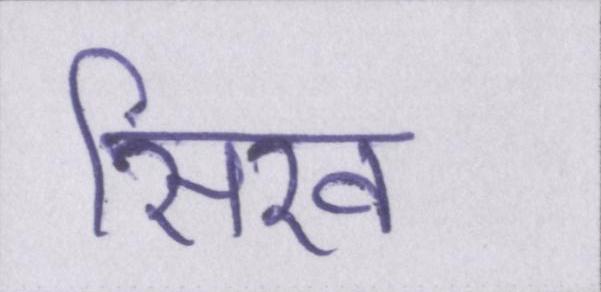 सिख